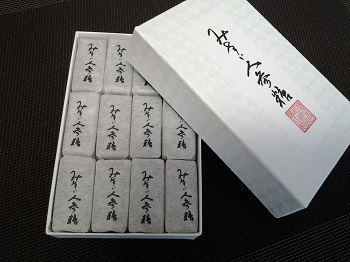 みすゞ人参糖
みすゞ人参糖
みすゞ人参糖
みすゞ人参糖
みすゞ人参糖
みすゞ人参糖
みすゞ人参糖
みすゞ人参糖
みすゞ人参糖
みすゞ人参糖
みすゞ人参糖